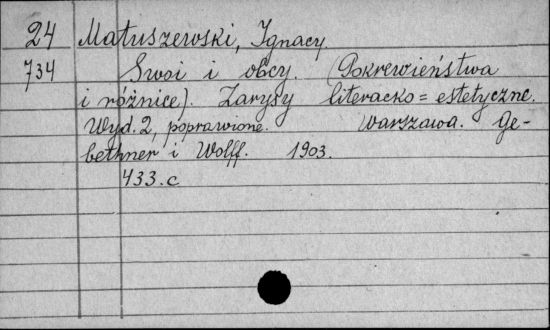 24 Matuszewski, Ignacy
734 Swoi i obcy. (Pokrewieństwa
i różnice). Zarysy literacko=estetyczne.
Wyd. 2, poprawione. Warszawa. Ge-
bethner i Wolff. 1903.
433.c